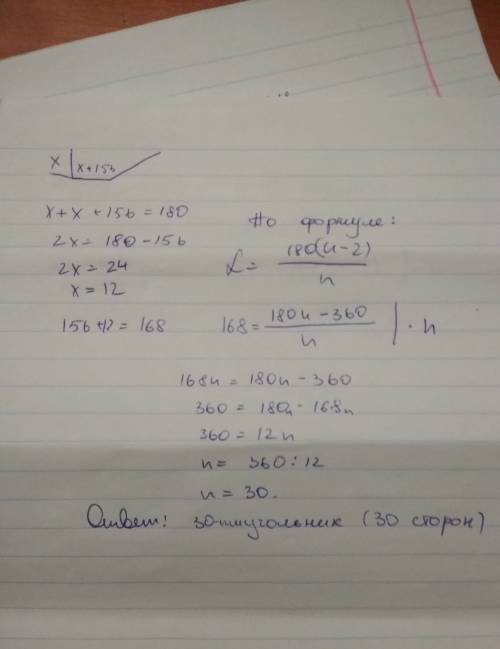 x x+156
x+x+156=180
2x=180-156
2x=24
x=12
156+12=168
По формуле:
α=180(n-2)/n
168=180n-360/n | · n
168n=180n-360
360=180n-168n
360=12n
n=360:12
n=30.
Ответ: 30-тиугольник (30 сторон)